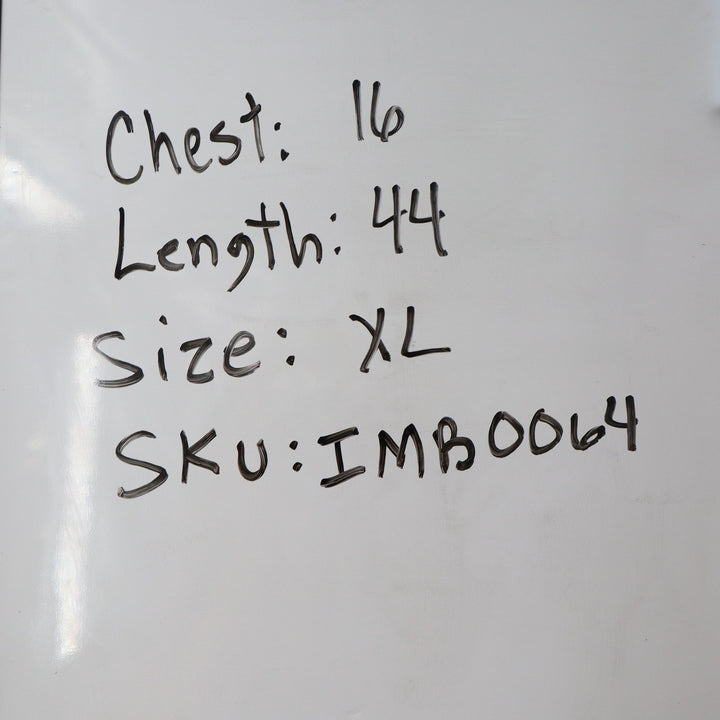 Chest: 16
Length: 44
Size: XL
SKU: IMB0064